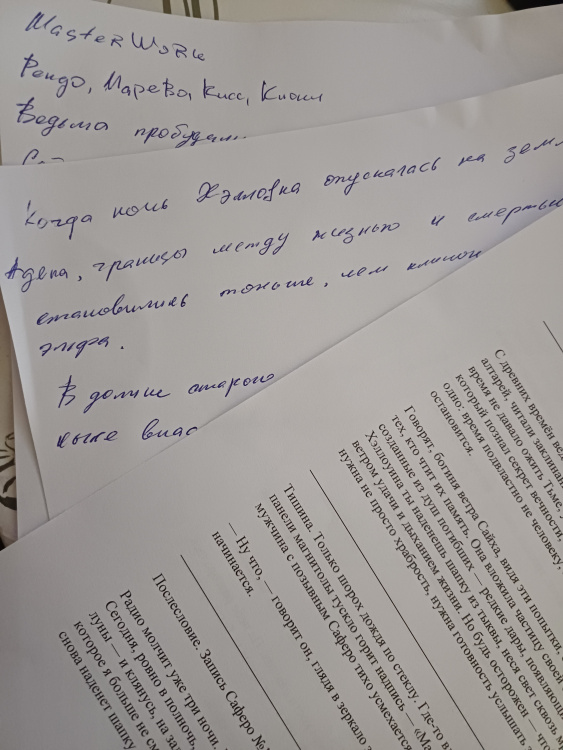 MasterWork
Рендо, Марево, Кисс, Киоши
Ведьма
Когда ночь Хэллоувина опускалась на
Адена, границы между жизнью и смертью
становились тоньше, чем клинок
эльфа.
В долине старого
С древних времён
алтарей, читали
время не давало ожить Тьме,
который познал секрет вечности,
одно: время подвластно не человеку,
остановится.
Говорят, богиня ветра Сайха, видя эти попытки,
созданные из душ погибших — редкие дары,
тех, кто чтит их память. Она вложила частицу своей
Хэллоуина ты наденешь шапку из тыквы, неся свет сквозь
ветром удачи и дыханием жизни. Но будь осторожен —
нужна не просто храбрость, нужна готовность услышать
Тишина. Только шорох дождя по стеклу. Где-то в
панели магнитолы тускло горит надпись —
мужчина с позывным Саферо тихо усмехается
— Ну что, — говорит он, глядя в зеркало
начинается.
Послесловие. Запись Саферо №
Радио молчит уже три ночи
Сегодня, ровно в полночь,
луны — и клянусь, на
которое я больше не
снова наденет шапку